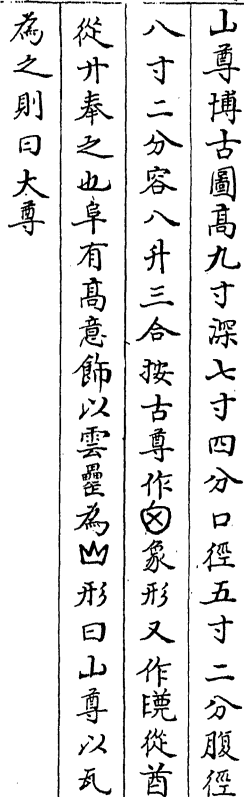 山尊博古圖髙九寸深七寸四分口徑五寸二分腹徑
八寸二分容八升三合按古尊作象形又作從酋
從廾奉之也阜有髙意飾以雲罍為形曰山尊以瓦
為之則曰大尊